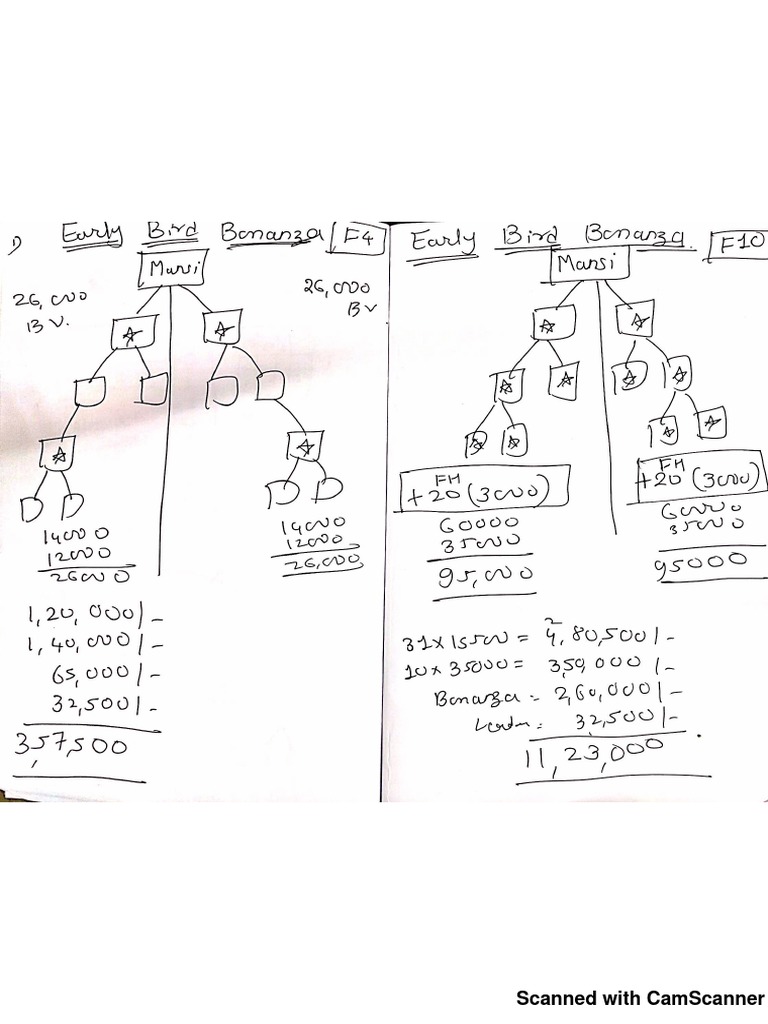 1) Early Bird Bonanza F4
Mansi
26,000
BV.
26,000
BV
14000
12000
26000
14000
12000
26,000
1,20,000/-
1,40,000/-
65,000/-
32,500/-
3,57,500
Early Bird Bonanza. F10
Mansi
FH
+20 (3000)
60000
35000
95,000
FH
+20 (3000)
60000
35000
95000
31×15500 = 4,80,500/-
10×35000 = 350,000/-
Bonanza = 2,60,000/-
32,500/-
11,23,000
Scanned with CamScanner